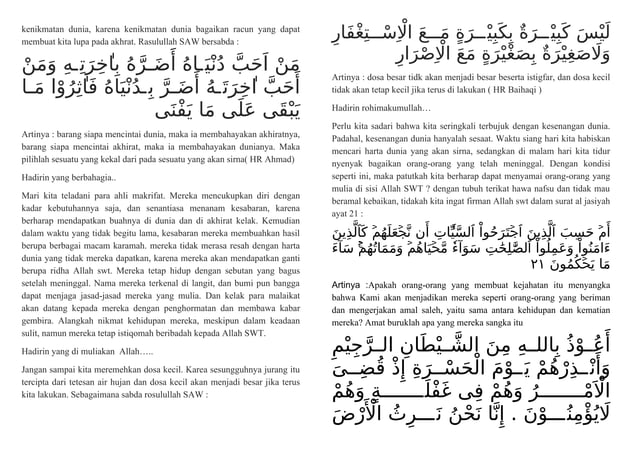 kenikmatan dunia, karena kenikmatan dunia bagaikan racun yang dapat
membuat kita lupa pada akhrat. Rasulullah SAW bersabda :
مَنْ اَحَبَّ دُنْيَاهُ أَضَرَّهُ بِاٰخِرَتِهِ وَمَنْ
أَحَبَّ اٰخِرَتَهُ أَضَرَّ بِدُنْيَاهُ فَاٰثِرُوْا مَا
يَبْقَى عَلَى مَا يَفْنَى
Artinya : barang siapa mencintai dunia, maka ia membahayakan akhiratnya,
barang siapa mencintai akhirat, maka ia membahayakan dunianya. Maka
pilihlah sesuatu yang kekal dari pada sesuatu yang akan sirna( HR Ahmad)
Hadirin yang berbahagia..
Mari kita teladani para ahli makrifat. Mereka mencukupkan diri dengan
kadar kebutuhannya saja, dan senantiasa menanam kesabaran, karena
berharap mendapatkan buahnya di dunia dan di akhirat kelak. Kemudian
dalam waktu yang tidak begitu lama, kesabaran mereka membuahkan hasil
berupa berbagai macam karamah. mereka tidak merasa resah dengan harta
dunia yang tidak mereka dapatkan, karena mereka akan mendapatkan ganti
berupa ridha Allah swt. Mereka tetap hidup dengan sebutan yang bagus
setelah meninggal. Nama mereka terkenal di langit, dan bumi pun bangga
dapat menjaga jasad-jasad mereka yang mulia. Dan kelak para malaikat
akan datang kepada mereka dengan penghormatan dan membawa kabar
gembira. Alangkah nikmat kehidupan mereka, meskipun dalam keadaan
sulit, namun mereka tetap istiqomah beribadah kepada Allah SWT.
Hadirin yang di muliakan Allah…..
Jangan sampai kita meremehkan dosa kecil. Karea sesungguhnya jurang itu
tercipta dari tetesan air hujan dan dosa kecil akan menjadi besar jika terus
kita lakukan. Sebagaimana sabda rosulullah SAW :
لَيْسَ كَبِيْرَةٌ بِكَبِيْرَةٍ مَعَ الْاِسْتِغْفَارِ
وَلَاصَغِيْرَةٌ بِصَغْيْرَةٍ مَعَ الْاِصْرَارِ
Artinya : dosa besar tidk akan menjadi besar beserta istigfar, dan dosa kecil
tidak akan tetap kecil jika terus di lakukan ( HR Baihaqi )
Hadirin rohimakumullah…
Perlu kita sadari bahwa kita seringkali terbujuk dengan kesenangan dunia.
Padahal, kesenangan dunia hanyalah sesaat. Waktu siang hari kita habiskan
mencari harta dunia yang akan sirna, sedangkan di malam hari kita tidur
nyenyak bagaikan orang-orang yang telah meninggal. Dengan kondisi
seperti ini, maka patutkah kita berharap dapat menyamai orang-orang yang
mulia di sisi Allah SWT ? dengan tubuh terikat hawa nafsu dan tidak mau
beramal kebaikan, tidakah kita ingat firman Allah swt dalam surat al jasiyah
ayat 21 :
أَمۡ حَسِبَ ٱلَّذِينَ ٱجۡتَرَحُواْ ٱلسَّيِّـَٔاتِ أَن نَّجۡعَلَهُمۡ كَٱلَّذِينَ
ءَامَنُواْ وَعَمِلُواْ ٱلصَّٰلِحَٰتِ سَوَآءٗ مَّحۡيَاهُمۡ وَمَمَاتُهُمۡۚ سَآءَ
مَا يَحۡكُمُونَ ٢١
Artinya :Apakah orang-orang yang membuat kejahatan itu menyangka
bahwa Kami akan menjadikan mereka seperti orang-orang yang beriman
dan mengerjakan amal saleh, yaitu sama antara kehidupan dan kematian
mereka? Amat buruklah apa yang mereka sangka itu
أَعُوْذُ بِاللهِ مِنَ الشَّيْطَانِ الرَّجِيْمِ
وَأَنْذِرْهُمْ يَوْمَ الْحَسْرَةِ إِذْ قُضِىَ
الْأَمْرُ وَهُمْ فِى غَفْلَةٍ وَهُمْ
لَايُؤْمِنُوْنَ . إِنَّا نَحْنُ نَرِثُ الْأَرْضَ